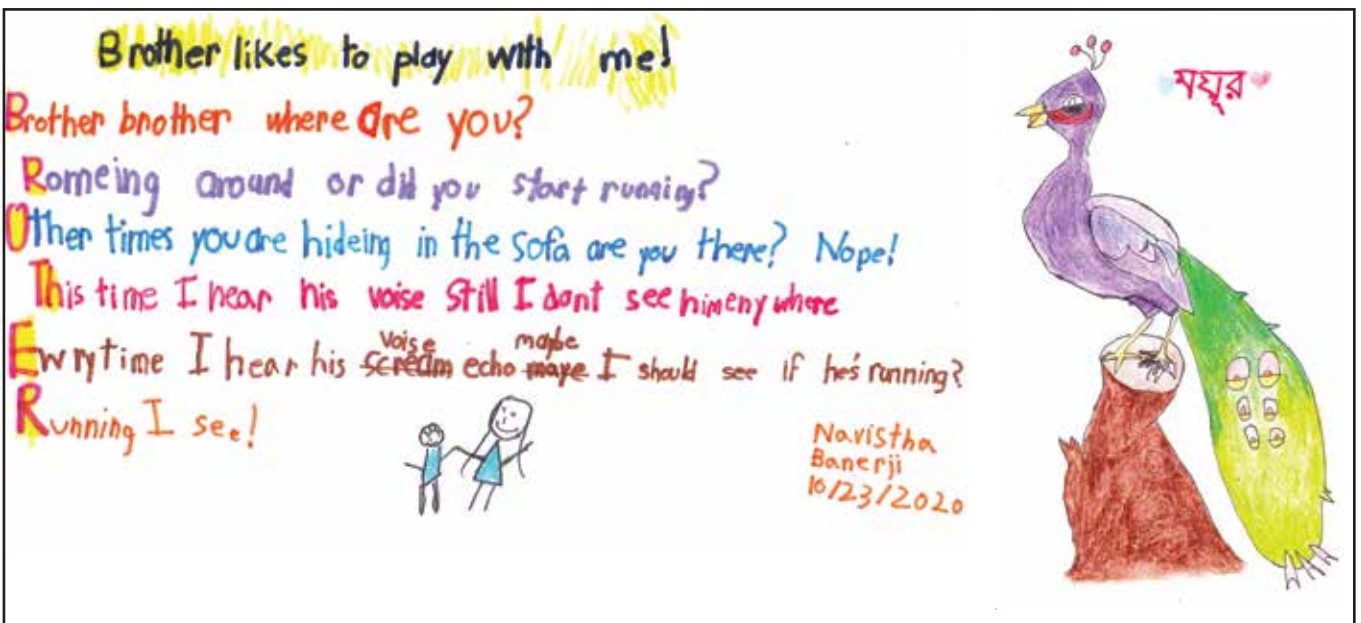 Brother likes to play with me!
Brother bnother where are you?
Romeing around or did you start running?
Other times you are hideing in the sofa are you there? Nope!
This time I hear his voise still I dont see him eny where
Ewrytime I hear his scream voise echo maye maybe I should see if he's running?
Running I see!
Navistha
Banerji
10/23/2020
ময়ূর